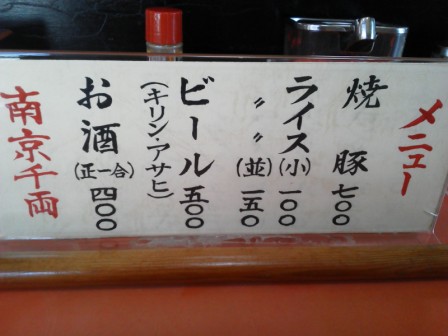 メニュー
焼豚 七〇〇
ライス(小) 一〇〇
〃〃(並) 一五〇
ビール 五〇〇
(キリン・アサヒ)
お酒(正一合) 四〇〇
南京千両